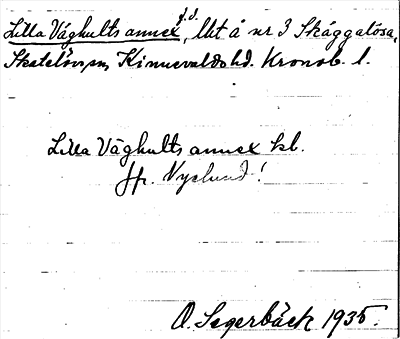 Lilla Våghults annex f.d., lht å nr 3 Skäggalösa,
Skatelövs sn, Kinnevalds hd. Kronob. l.
Lilla Våghults annex kl.
jfr. Nyelund!
O. Segerbäck 1935.